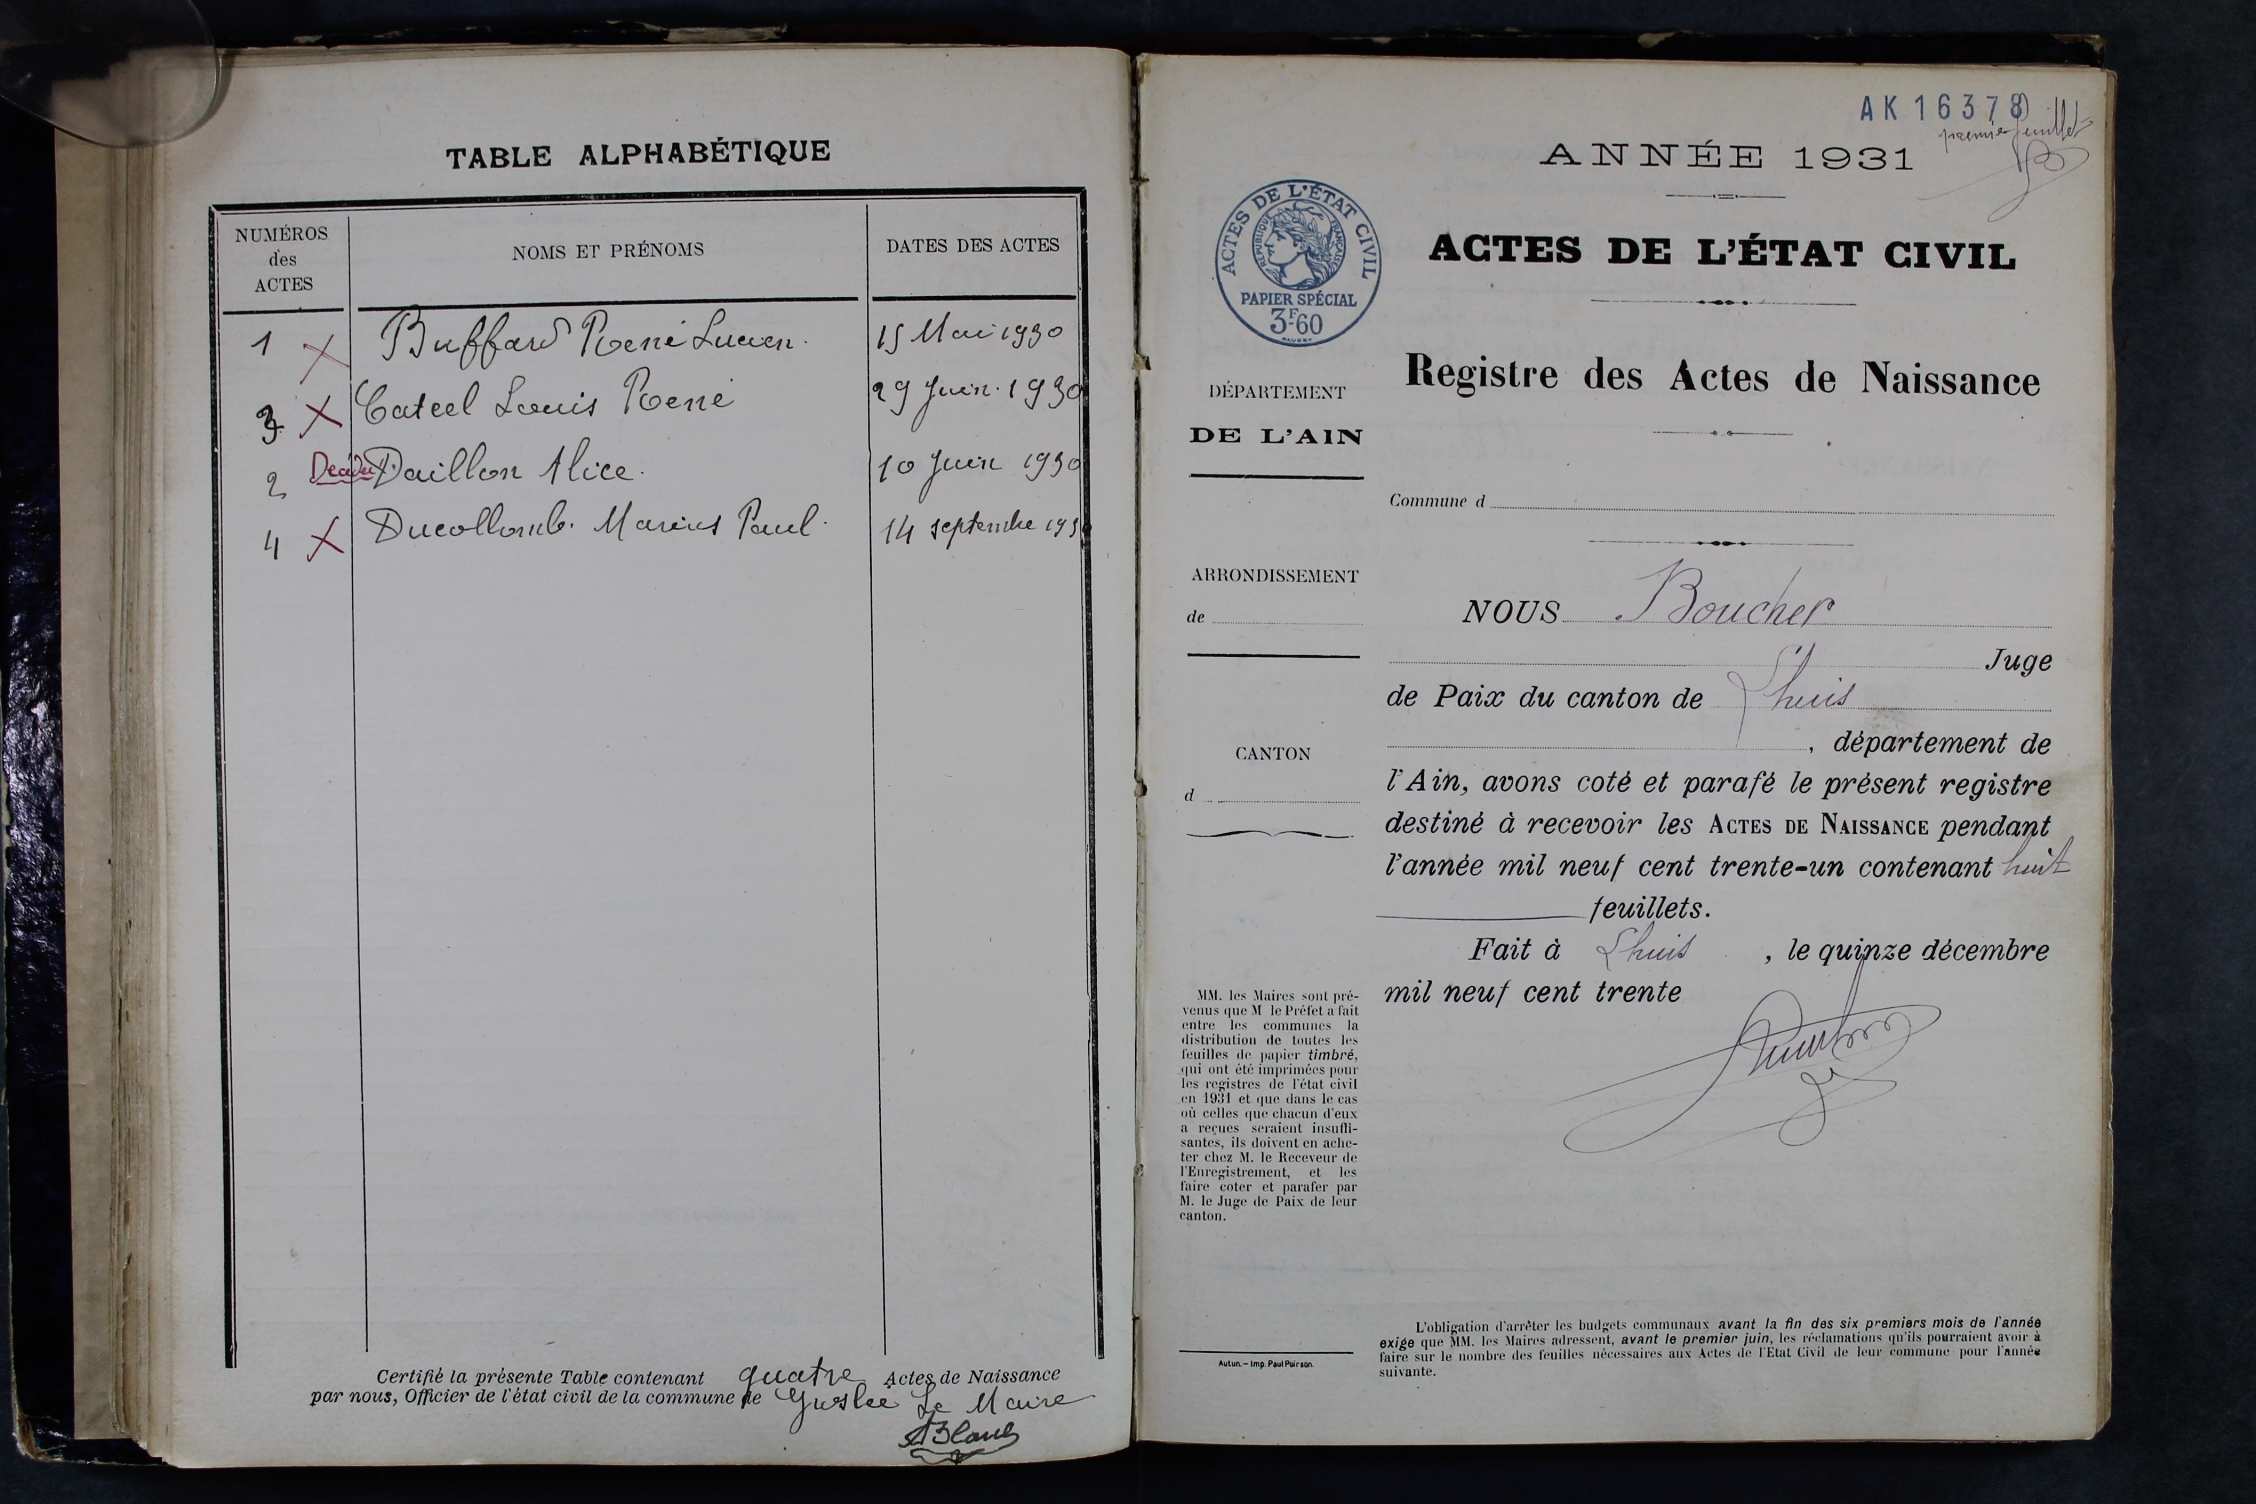 TABLE ALPHABÉTIQUE
NUMÉROS
des
ACTES
NOMS ET PRÉNOMS
DATES DES ACTES
1 Buffard René Lucien. 15 Mai 1930
3 Cateel Louis René 29 Juin. 1930
2 Décédée Daillon Alice. 10 Juin 1930
4 Ducollomb. Marius Paul. 14 septembre 1930
Certifié la présente Table contenant quatre Actes de Naissance
par nous, Officier de l'état civil de la commune de Le Maire
Blanc
AK 16378
premier feuillet
ANNÉE 1931
ACTES DE L'ÉTAT CIVIL
RÉPUBLIQUE FRANÇAISE
PAPIER SPÉCIAL
3F.60
ACTES DE L'ÉTAT CIVIL
Registre des Actes de Naissance
DÉPARTEMENT
DE L'AIN
Commune d
ARRONDISSEMENT
de
CANTON
d
NOUS Boucher
Juge
de Paix du canton de Lhuis
, département de
l'Ain, avons coté et parafé le présent registre
destiné à recevoir les ACTES DE NAISSANCE pendant
l'année mil neuf cent trente-un contenant huit
feuillets.
Fait à Lhuis , le quinze décembre
mil neuf cent trente
MM. les Maires sont pré-
venus que M le Préfet a fait
entre les communes la
distribution de toutes les
feuilles de papier timbré,
qui ont été imprimées pour
les registres de l'état civil
en 1931 et que dans le cas
où celles que chacun d'eux
a reçues seraient insuffi-
santes, ils doivent en ache-
ter chez M. le Receveur de
l'Enregistrement, et les
faire coter et parafer par
M. le Juge de Paix de leur
canton.
Autun. – Imp. Paul Poirson.
L'obligation d'arrêter les budgets communaux avant la fin des six premiers mois de l'année
exige que MM. les Maires adressent, avant le premier juin, les réclamations qu'ils pourraient avoir à
faire sur le nombre des feuilles nécessaires aux Actes de l'Etat Civil de leur commune pour l'année
suivante.